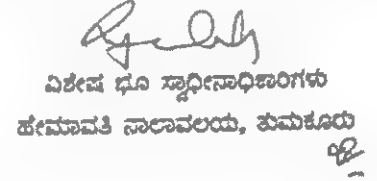 ವಿಶೇಷ ಭೂ ಸ್ವಾಧೀನಾಧಿಕಾರಿಗಳು
ಹೇಮಾವತಿ ನಾಲಾವಲಯ, ತುಮಕೂರು